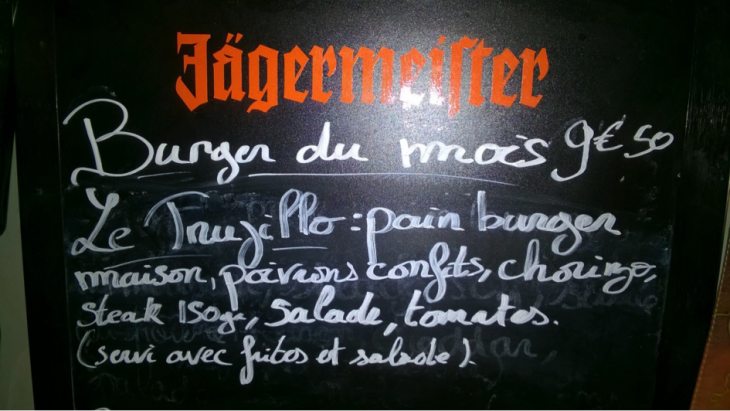 Jägermeister
Burger du mois 9€50
Le Trujillo : pain burger
maison, poivrons confits, chorizo,
steak 150gr, salade, tomates.
(servi avec frites et salade).